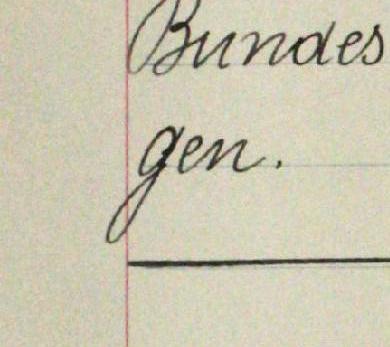 Bundes
gen.